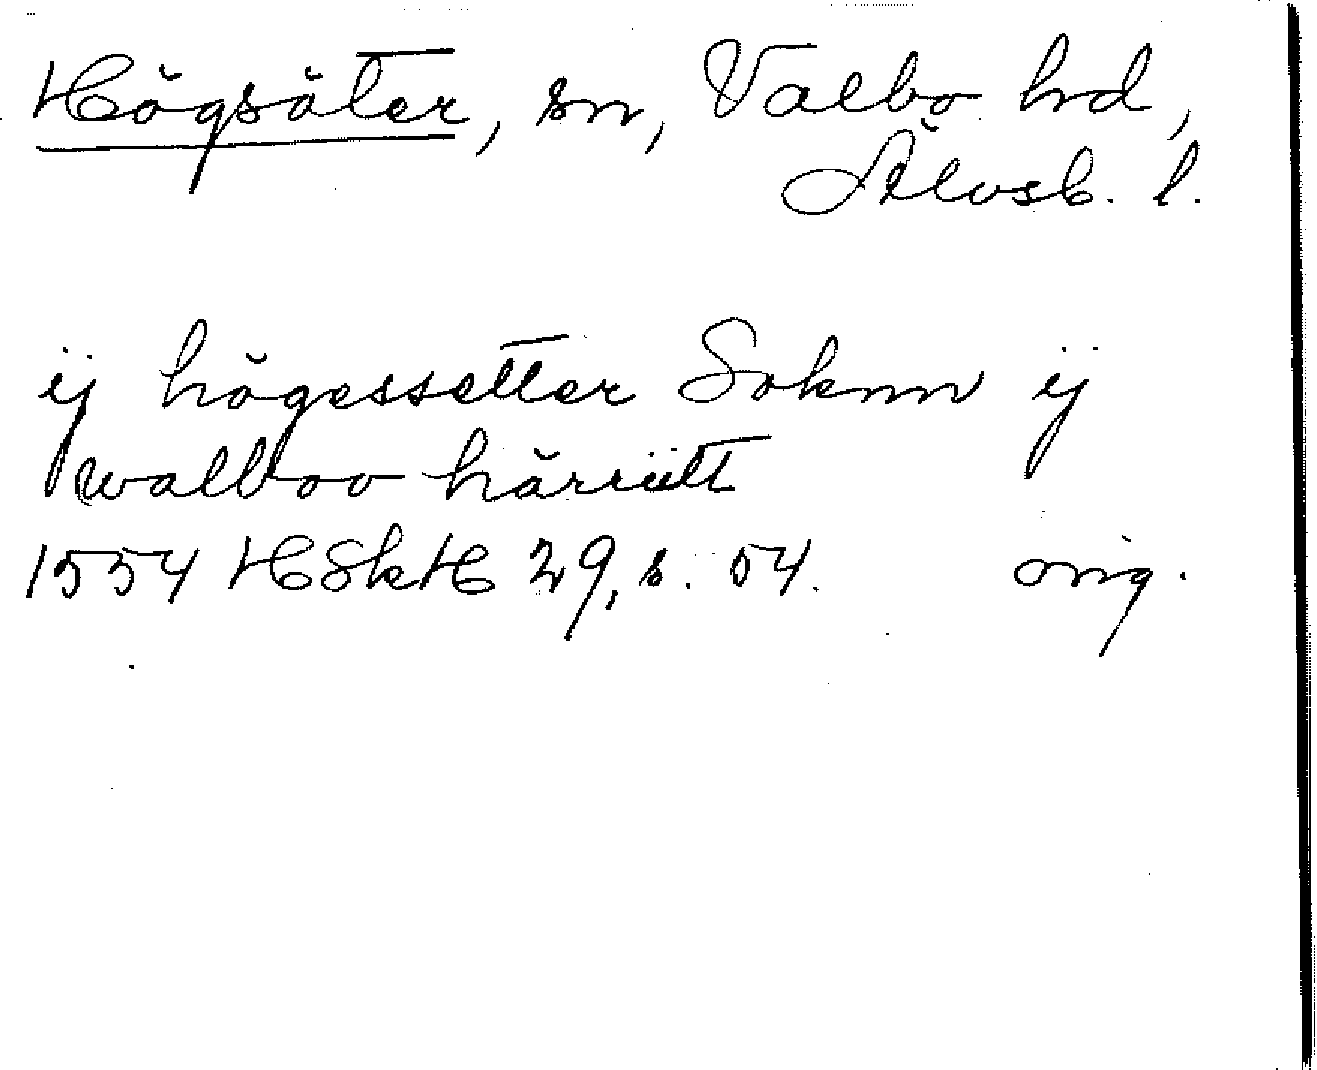 Högsäter, sn, Valbo hd,
Älvsb. l.
ij högessetter Soknn ij
walboo härriitt
1554 HSkH 29, s. 54. orig.